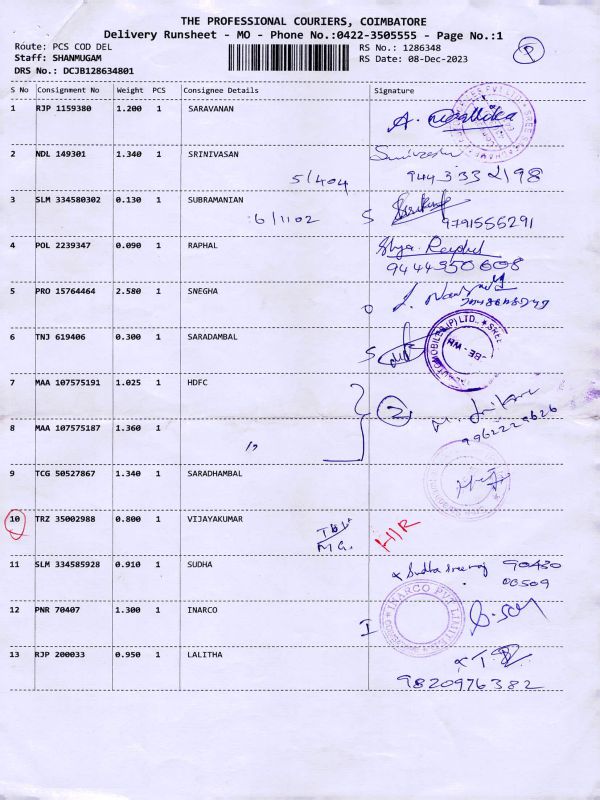 THE PROFESSIONAL COURIERS, COIMBATORE
Delivery Runsheet - MO - Phone No.:0422-3505555 - Page No.:1
Route: PCS COD DEL RS No.: 1286348 P
Staff: SHANMUGAM RS Date: 08-Dec-2023
DRS No.: DCJB128634801
S No Consignment No Weight PCS Consignee Details Signature
1 RJP 1159380 1.200 1 SARAVANAN
2 NDL 149301 1.340 1 SRINIVASAN
5/404 944 333 2198
3 SLM 334580302 0.130 1 SUBRAMANIAN
6/1102 S 9791555291
4 POL 2239347 0.090 1 RAPHAL
9444350608
5 PRO 15764464 2.580 1 SNEGHA
6 TNJ 619406 0.300 1 SARADAMBAL
S
7 MAA 107575191 1.025 1 HDFC
2
8 MAA 107575187 1.360 1 9962229626
9 TCG 50527867 1.340 1 SARADHAMBAL
10 TRZ 35002988 0.800 1 VIJAYAKUMAR
11 SLM 334585928 0.910 1 SUDHA x Sudha 90430
00509
12 PNR 70407 1.300 1 INARCO
I INARCO PVT LIMITED
13 RJP 200033 0.950 1 LALITHA
9820976382